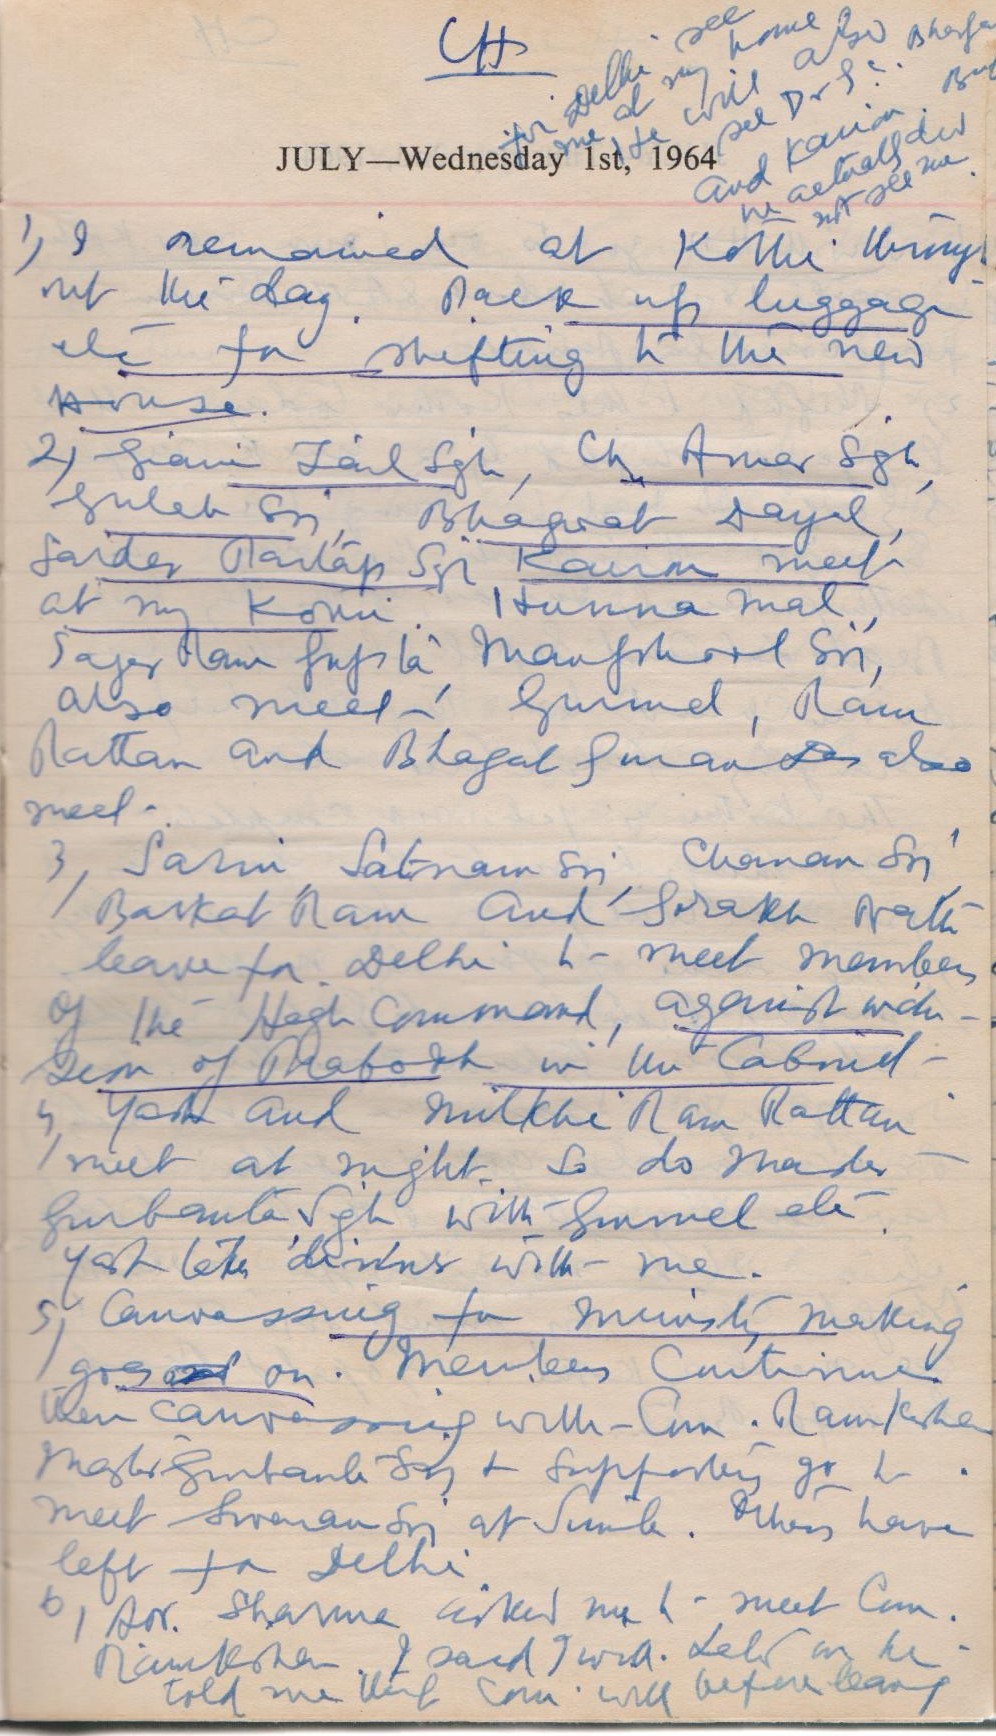 CH
for Delhi see
me at my home
He will also
see Dr S.
and Kairon. But
he actually did
not see me.
JULY—Wednesday 1st, 1964
1) I remained at Kothi through
out the day. Pack up luggage
etc for shifting to the new
House.
2) Giani Zail Sgh, Ch Amar Sgh,
Gulab Sgh, Bhagwat Dayal,
Sardar Partap Sgh Kairon meet
at my Kothi. Hunna Mal,
Sagar Ram Gupta, Manphool Sgh,
also meet. Gurmel, Ram
Rattan and Bhagat Guran Das also
meet.
3, Sarin, Satnam Sgh, Chanan Sgh,
Barkat Ram and Gorakh Nath
leave for Delhi to meet members
of the High Command, against inclu-
sion of Prabodh in the Cabinet
4, Yash and Milkhi Ram Rattan
meet at night. So do Master
Gurbanta Sgh with Gurmel etc.
Yash later discuss with me.
5, Canvassing for Ministry making
goes on. Members Continue
their canvassing with Com. Ramkishan
Master Gurbanta Sgh & supporters go to
meet Swaran Sgh at Simla. Others have
left for Delhi
6, Dr. Sharma asked me to meet Com.
Ramkishan. I said I will. Later on he
told me that Com. will before leaving